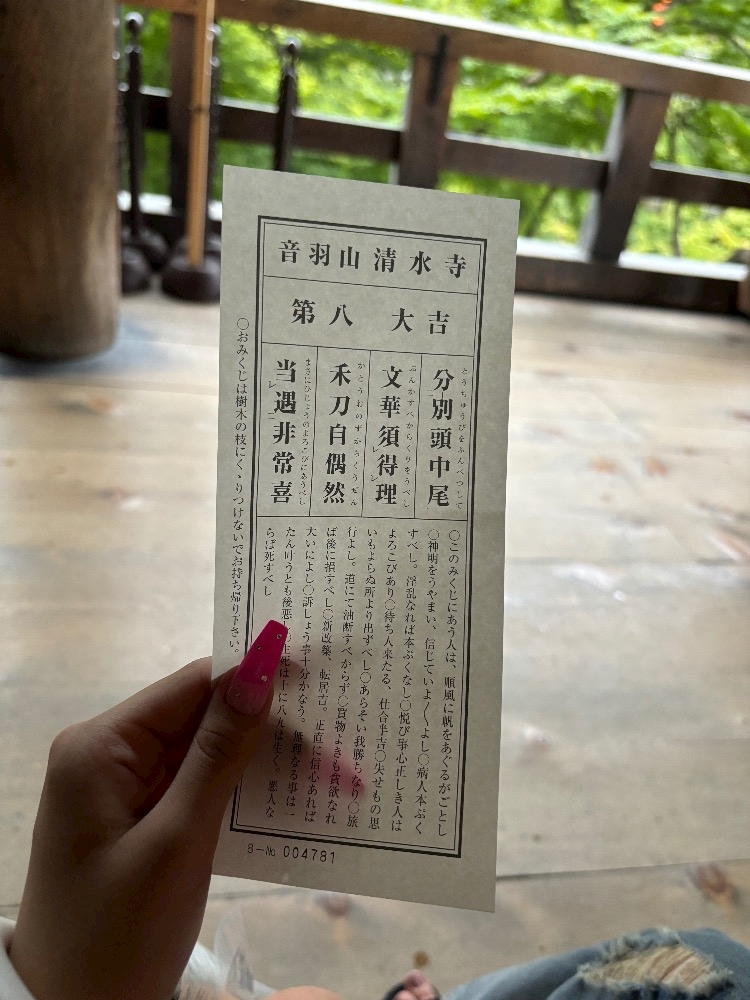 音羽山清水寺
第八 大吉
とうちゅうびをふんべつして
分別頭中尾
ぶんかすべからくりをうべし
文華須得理
かとうおのずからぐうぜん
禾刀自偶然
まさにひじょうのよろこびにあうべし
当遇非常喜
レ
レ
〇このみくじにあう人は、順風に帆をあぐるがごとし
〇神明をうやまい、信じていよ〱よし〇病人本ぶく
すべし。淫乱なれば本ぶくなし〇悦び事心正しき人は
よろこびあり〇待ち人来たる、仕合半吉〇失せもの思
いもよらぬ所より出ずべし〇あらそい我勝ちなり〇旅
行よし。道にて油断すべからず〇買物よきも貪欲なれ
ば後に損すべし〇新改築、転居吉。正直に信心あれば
大いによし〇訴しょう事十分かなう。無理なる事は一
たん叶うとも後悪し〇生死は十に八九は生く。悪人な
らば死すべし
〇おみくじは樹木の枝にくゝりつけないでお持ち帰り下さい。
8－№ 004781